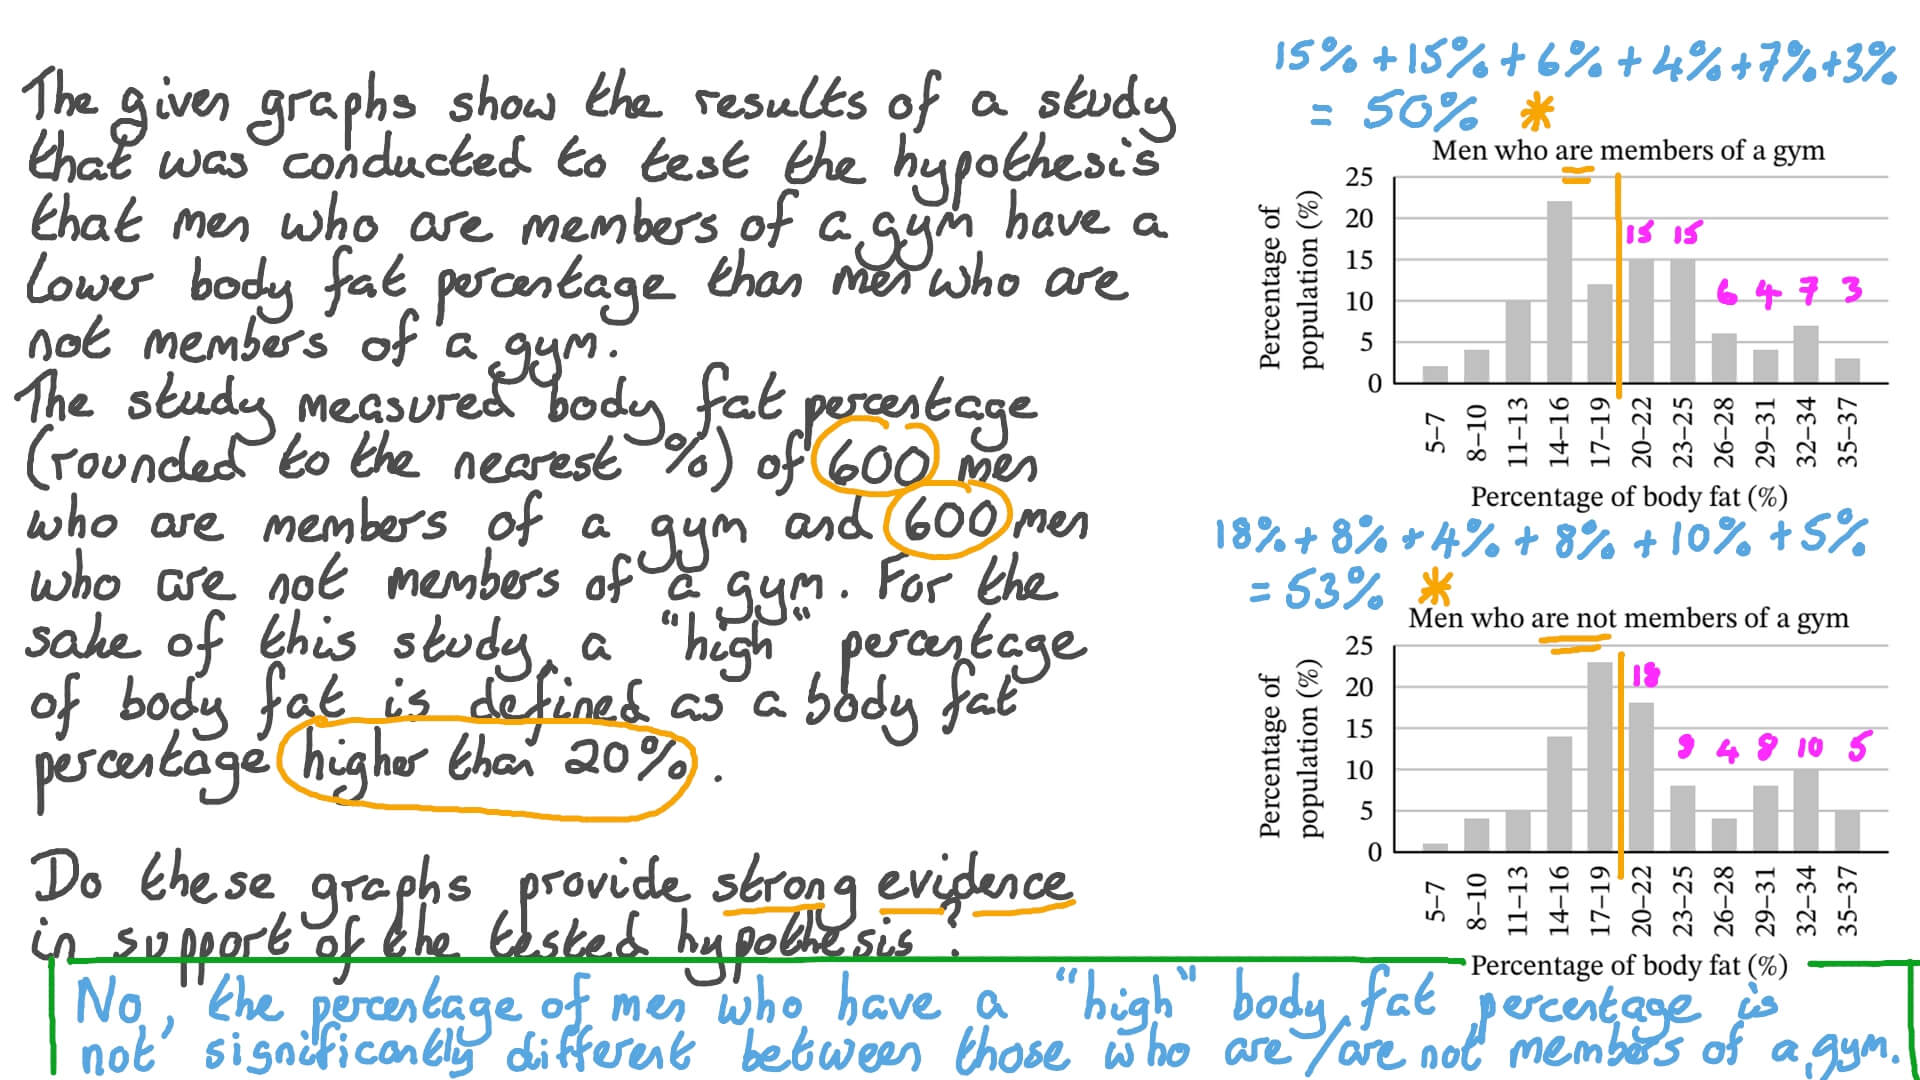 The given graphs show the results of a study
that was conducted to test the hypothesis
that men who are members of a gym have a
lower body fat percentage than men who are
not members of a gym.
The study measured body fat percentage
(rounded to the nearest %) of 600 men
who are members of a gym and 600 men
who are not members of a gym. For the
sake of this study, a "high" percentage
of body fat is defined as a body fat
percentage higher than 20%.
Do these graphs provide strong evidence
in support of the tested hypothesis?
15% + 15% + 6% + 4% + 7% + 3%
= 50% *
Men who are members of a gym
Percentage of
population (%)
25
20
15
10
5
0
15 15 6 4 7 3
5–7 8–10 11–13 14–16 17–19 20–22 23–25 26–28 29–31 32–34 35–37
Percentage of body fat (%)
18% + 8% + 4% + 8% + 10% + 5%
= 53% *
Men who are not members of a gym
Percentage of
population (%)
25
20
15
10
5
0
18 8 4 8 10 5
5–7 8–10 11–13 14–16 17–19 20–22 23–25 26–28 29–31 32–34 35–37
Percentage of body fat (%)
No, the percentage of men who have a "high" body fat percentage is
not significantly different between those who are/are not members of a gym.